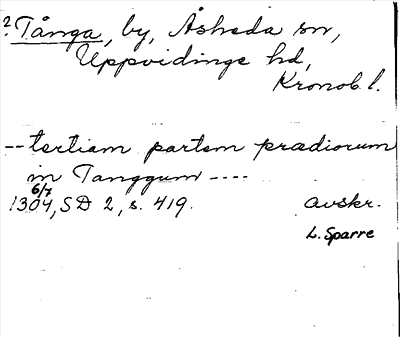 ? Tånga, by, Åsheda sn,
Uppvidinge hd,
Kronob. l.
--tertiam partem prædiorum
in Tanggum ----
6/7
1304, SD 2, s. 419. avskr.
L. Sparre